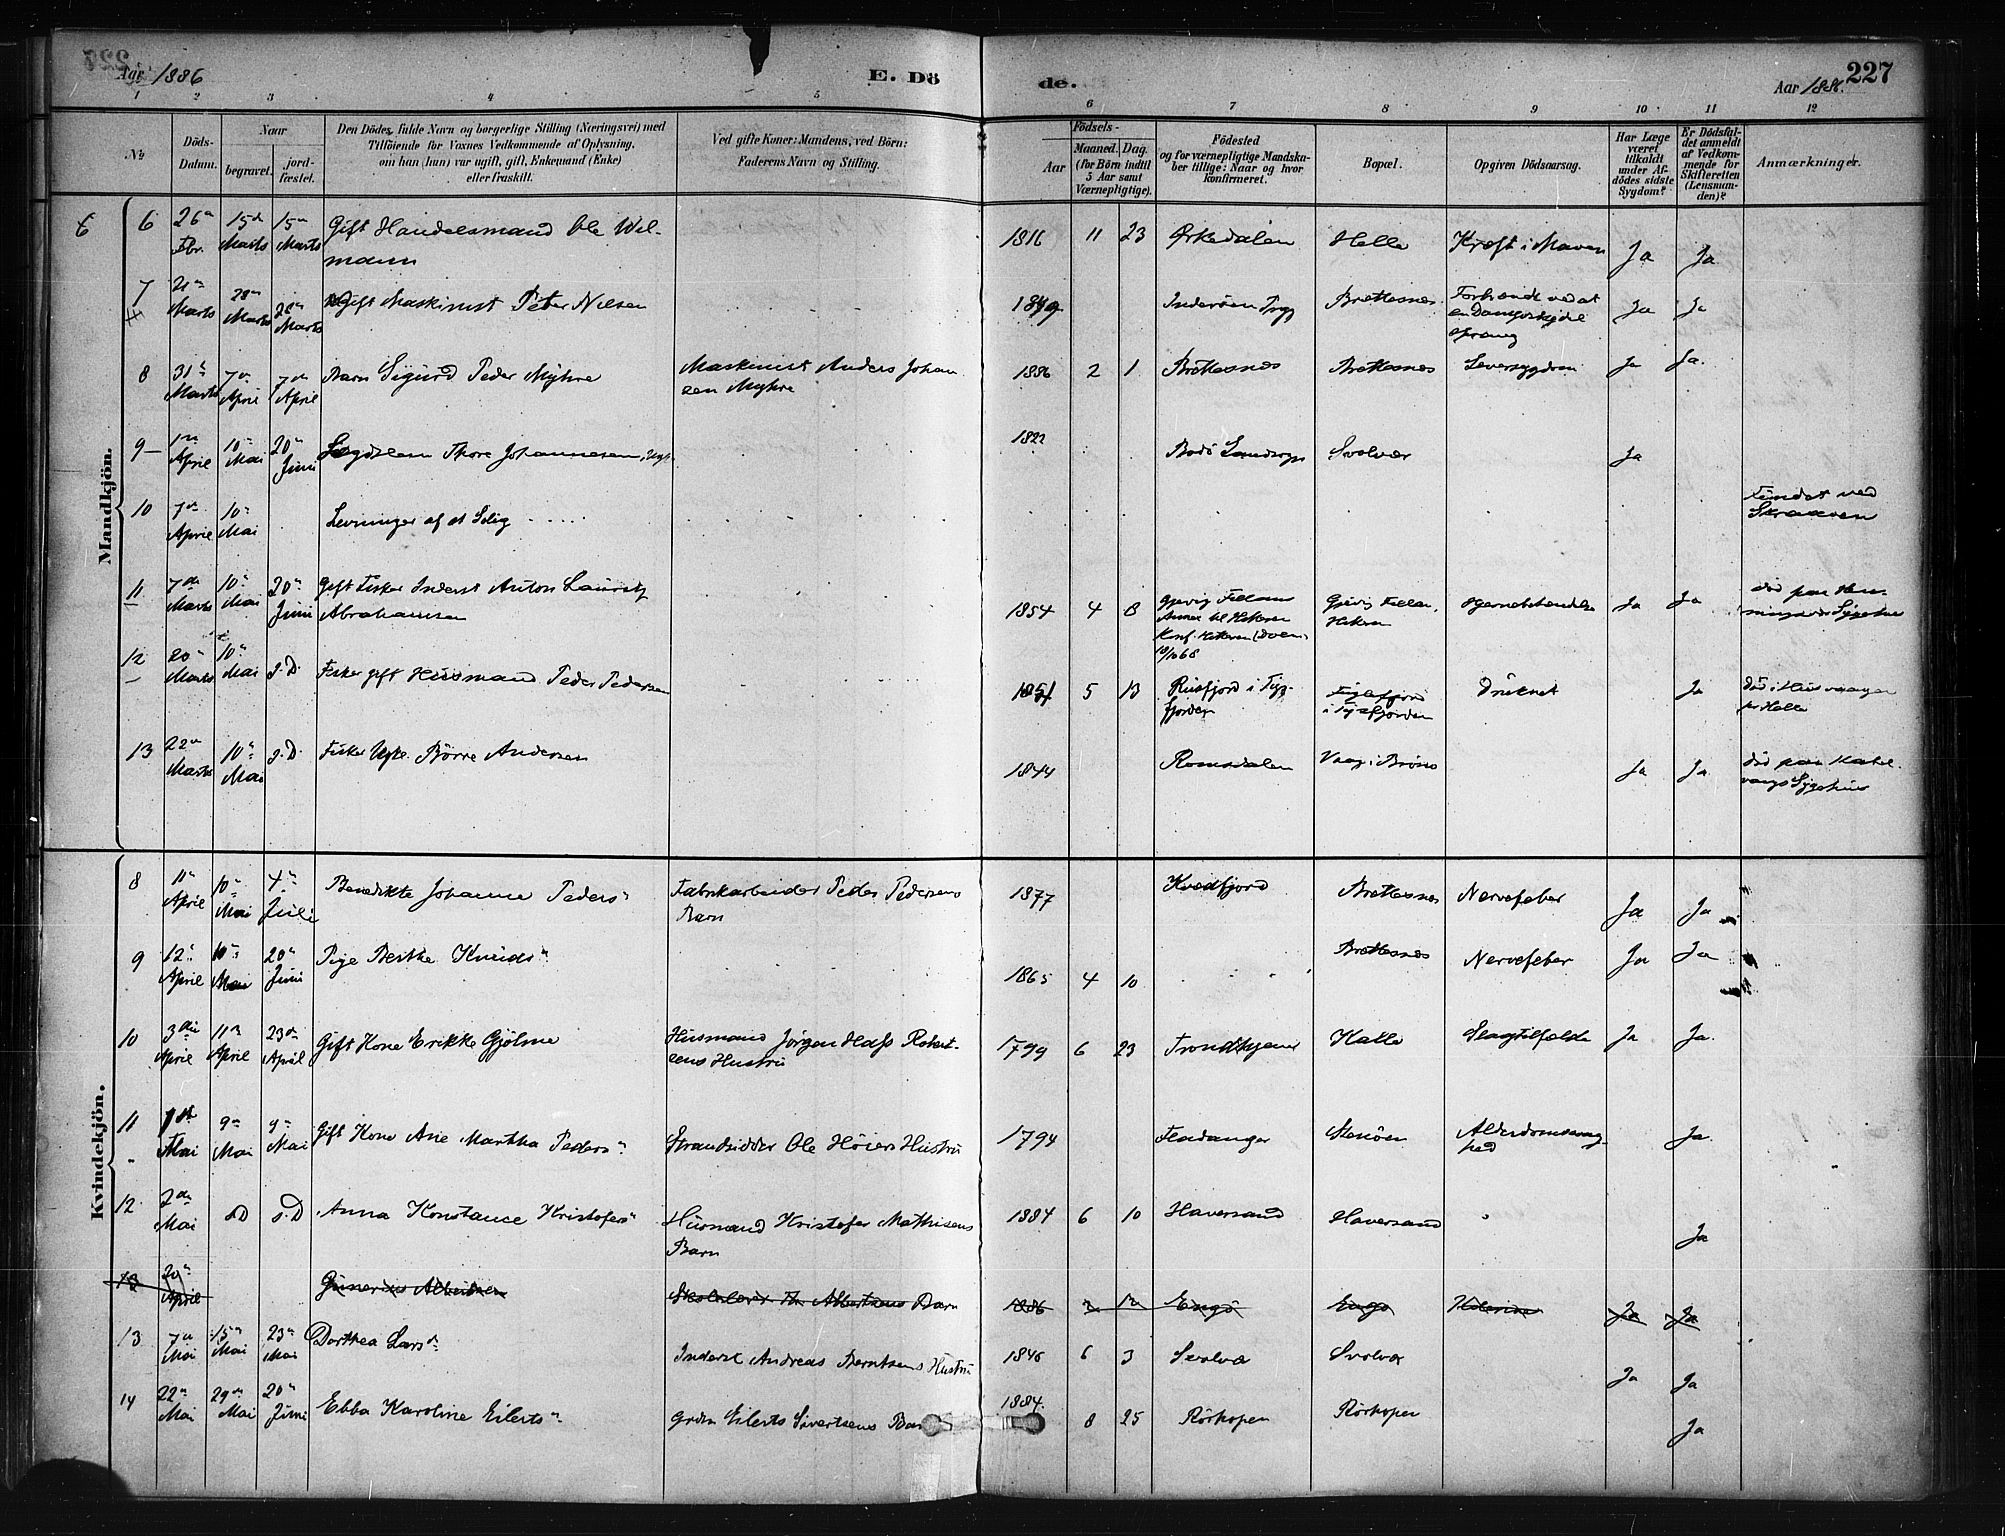 Aar 1886
E. Dö
de.
Aar 1886.
227
1 2 3 4 5 6 7 8 9 10 11 12
No
Döds-Datum.
Naar
begravet.
jord-fæstet.
Den Dödes fulde Navn og borgerlige Stilling (Næringsvei) med
Tilföiende for Voxnes Vedkommende af Oplysning,
om han (hun) var ugift, gift, Enkemand (Enke)
eller fraskilt.
Ved gifte Koner: Mandens, ved Börn:
Faderens Navn og Stilling.
Födsels-
Aar
Maaned. Dag.
(for Börn indtil
5 Aar samt
Værnepligtige).
Födested
og for værnepligtige Mandska-
ber tillige: Naar og hvor
konfirmeret.
Bopæl.
Opgiven Dödsaarsag.
Har Læge
været
tilkaldt
under Af-
dödes sidste
Sygdom?
Er Dödsfal-
det anmeldt
af Vedkom-
mende for
Skifteretten
(Lensman-
den)?
Anmærkninger.
Mandkjön.
6 26de Fbr. 15de Marts 15de Marts Gift Handelsmand Ole Wel-
mann 1816 11 23 Ørkedalen Helle Kræft i Maven Ja Ja
7 21de Marts 28de Marts 28de Marts Gift Maskinist Peter Nilsen 1849 Inderöen Brettesnes Forbrændt ved at
en Dampkjedel
sprang Ja Ja
8 31te Marts 7de April 7de April Barn Sigurd Peder Myhre Maskinist Anders Johan
sen Myhre 1886 2 1 Brettesnes Brettesnes Leversygdom Ja Ja.
9 1ste April 10de Mai 20de Juni Lægdslem Thore Johannesen, 1822 Bodö Landsogn Svolvær Ja
10 7de April 10de Mai Levninger af et Liig Fundet ved
Skraaven
11 7de Marts 10de Mai 20de Juni Gift Fisker Inderst Anton Lauritz
Abrahamsen 1854 4 8 Gjevig
Annex til Hiteren
Konf. Hiteren
Hiteren Hjernebetændelse Ja Ja död paa Hen-
ningsvær Sygehus
12 20de Marts 10de Mai s.D. Fisker gift Husmand Peder Pedersen 1851 5 13 Rusfjord i Tys-
fjorden
i Tysfjorden Druknet Ja
pr Helle
13 22de Marts 10de Mai s.D. Fisker Ugift Börre Andersen 1844 Romsdalen Vaag i Brönö Ja Ja död paa Kabel-
vaags Sygehus
Kvindekjön.
8 11te April 10de Mai 4de Juli Benedikte Johanne Peders" Fabrikarbeider Peder Pedersens
Barn 1877 Kvedfjord Brettesnes Nervefeber Ja Ja
9 12te April 10de Mai 20de Juni Pige Berthe Knuds" 1865 4 10 Brettesnes Nervefeber Ja Ja
10 3die April 11te April 23de April Gift Kone Erikke Gjölme Husmand Jörgen Hass Robert-
sens Hustru 1799 6 23 Trondhjem Kalle Slagtilfælde Ja Ja.
11 1ste Mai 9de Mai 9de Mai Gift Kone Ane Martha Peders" Strandsidder Ole Höiers Hustru 1794 Fladanger Stenöen Alderdomssvag-
hed Ja.
12 2den Mai s.D s.D Anna Konstance Kristofers" Husmand Kristofer Mathisens
Barn 1884 6 10 Haversand Haversand Ja
13 20de April Barn 1886 Engö Engö Ja Ja
13 7de Mai 15de Mai 23de Mai Dorthea Larsd. Inderst Andreas Berntsens Hustru 1846 6 3 Svolvær Svolvær Ja Ja
14 22de Mai 29de Mai 20de Juni Ebba Karoline Eilerts" Grdm Eilerts Sivertsens Barn 1884. 8 25 Rörhopen Rörhopen Ja